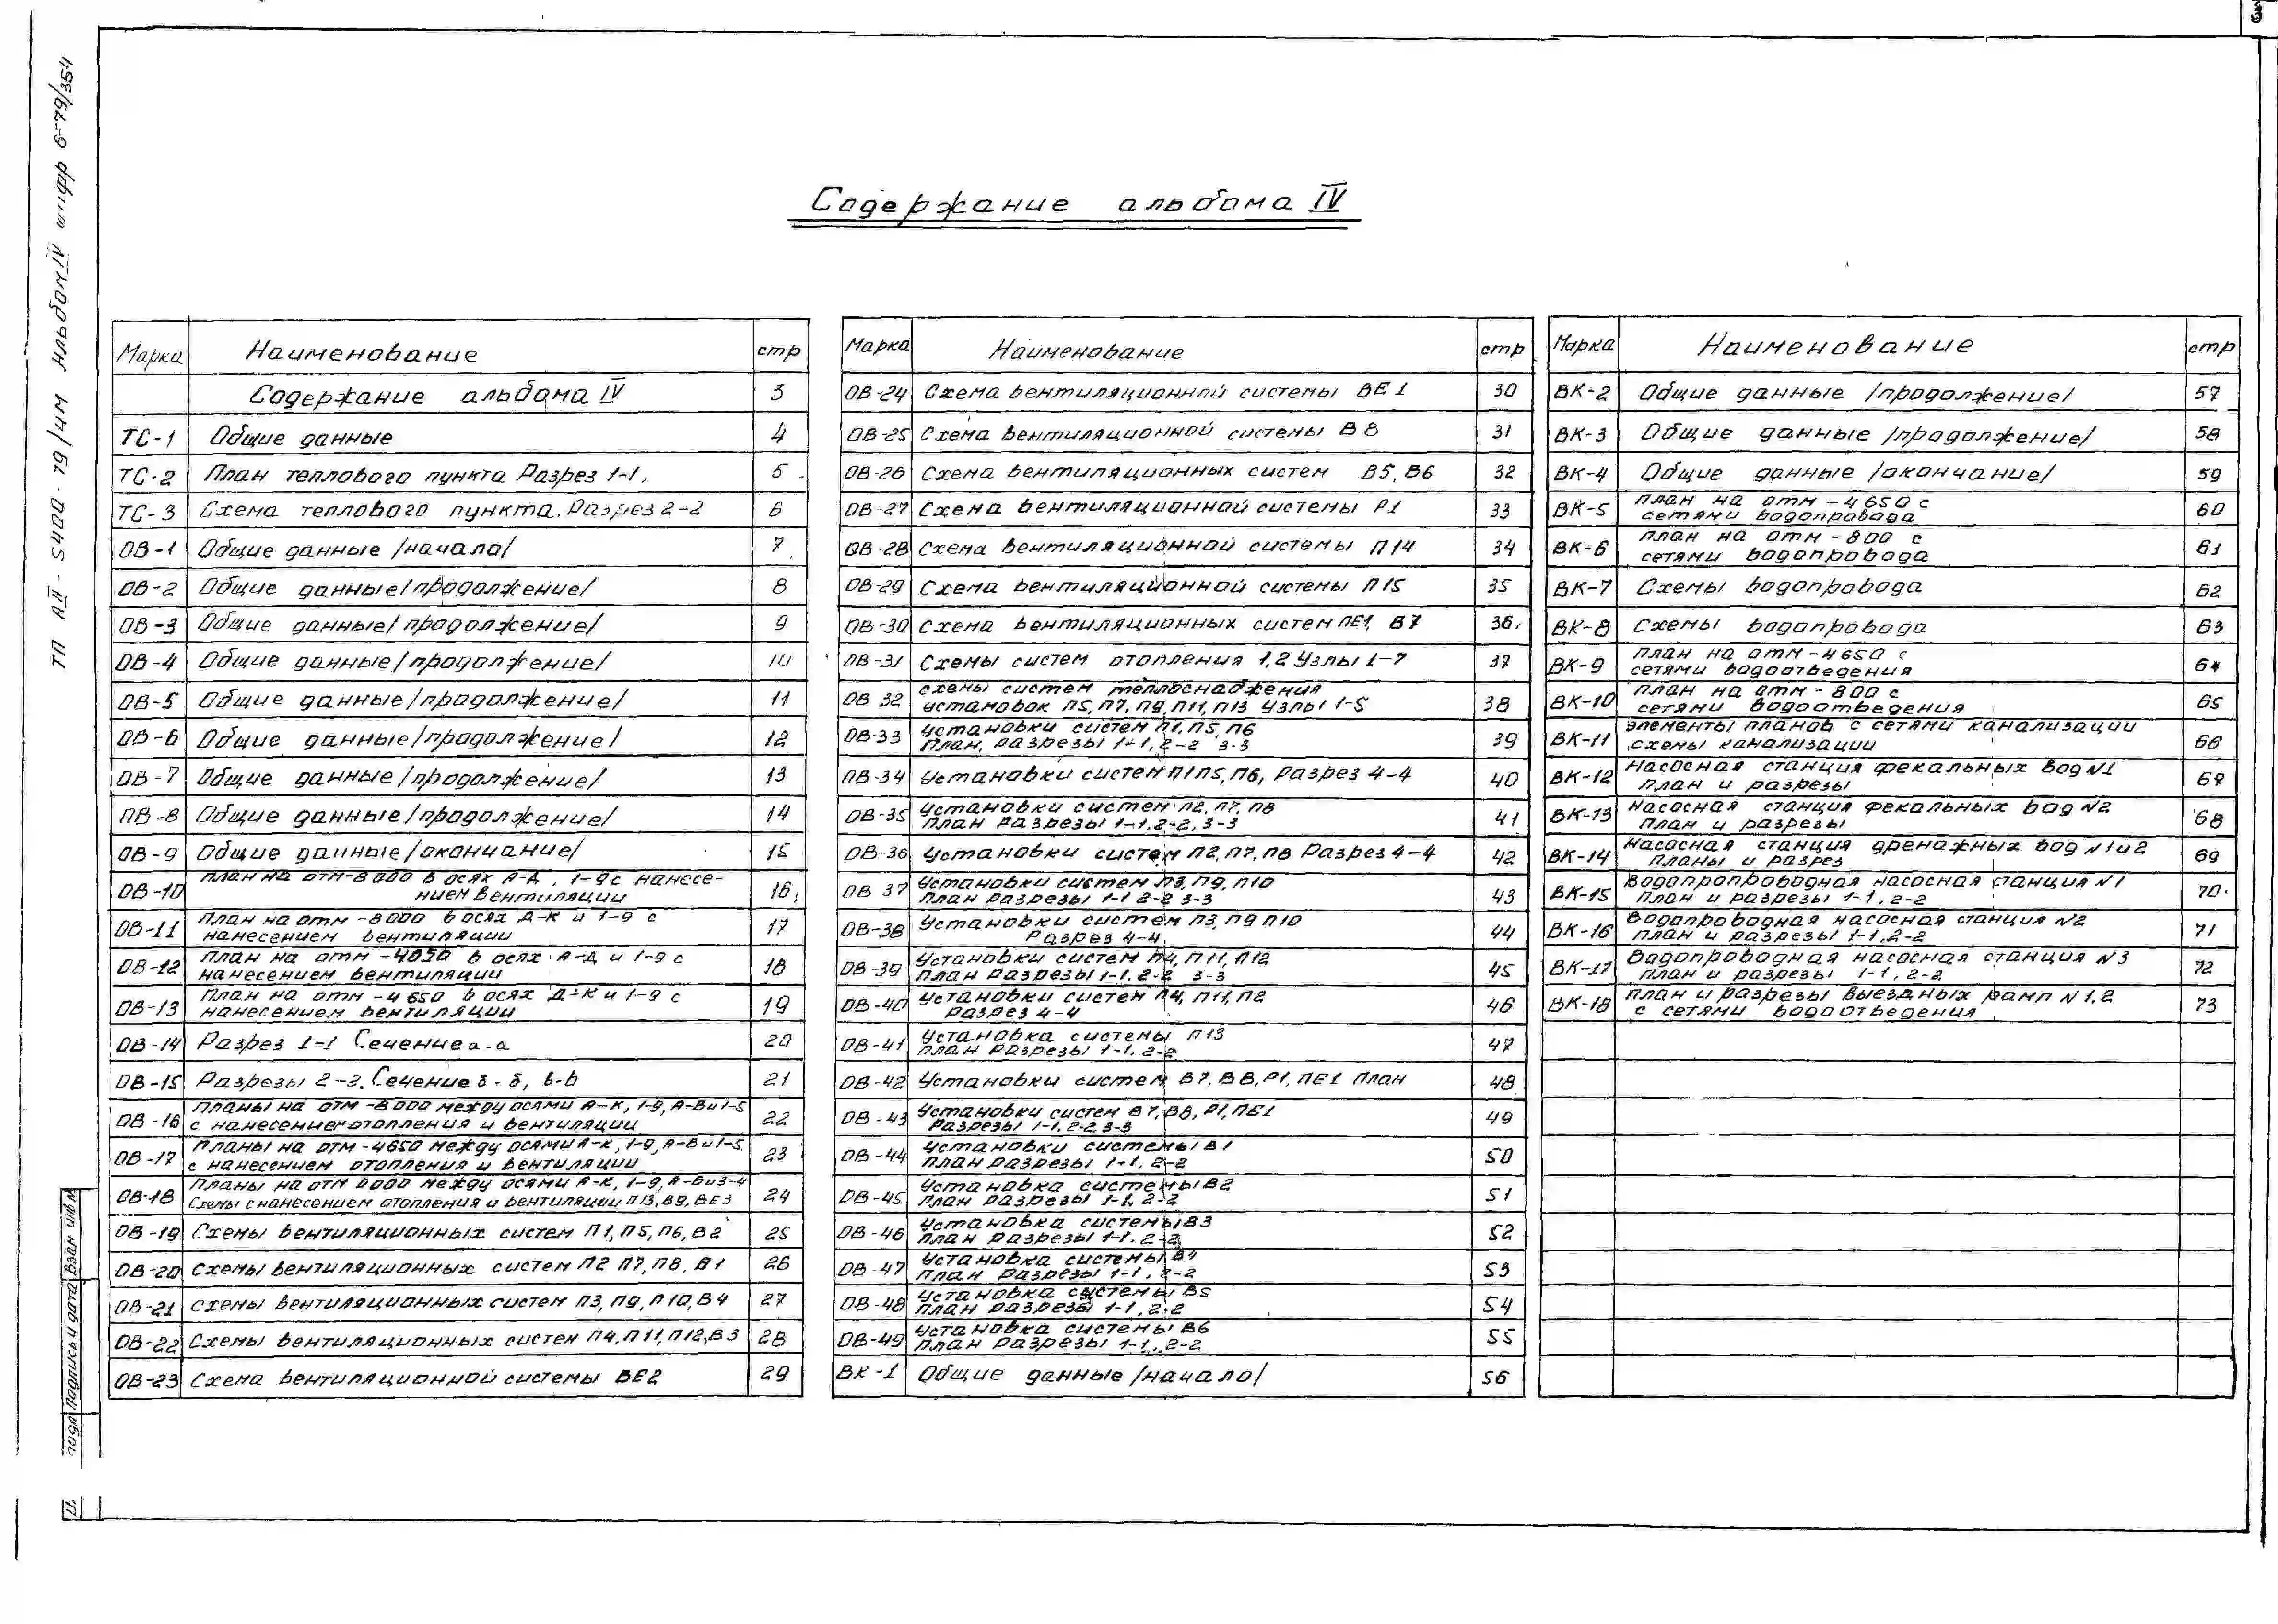 3
ТП АII-5400-79/4М Альбом IV шифр 6-79/354
Содержание альбома IV
Марка Наименование стр
Содержание альбома IV 3
ТС-1 Общие данные 4
ТС-2 План теплового пункта Разрез 1-1, 5
ТС-3 Схема теплового пункта. Разрез 2-2 6
ОВ-1 Общие данные /начало/ 7
ОВ-2 Общие данные /продолжение/ 8
ОВ-3 Общие данные /продолжение/ 9
ОВ-4 Общие данные /продолжение/ 10
ОВ-5 Общие данные /продолжение/ 11
ОВ-6 Общие данные /продолжение/ 12
ОВ-7 Общие данные /продолжение/ 13
ОВ-8 Общие данные /продолжение/ 14
ОВ-9 Общие данные /окончание/ 15
ОВ-10 План на отм-8000 в осях А-Д, 1-9 с нанесе-
нием вентиляции 16
ОВ-11 План на отм -8000 в осях Д-К и 1-9 с
нанесением вентиляции 17
ОВ-12 План на отм -4650 в осях А-Д и 1-9 с
нанесением вентиляции 18
ОВ-13 План на отм -4650 в осях Д-К и 1-9 с
нанесением вентиляции 19
ОВ-14 Разрез 1-1 Сечение а-а 20
ОВ-15 Разрезы 2-2. Сечение б-б, в-в 21
ОВ-16 Планы на отм -8000 между осями А-К, 1-9, А-В и 1-5
с нанесением отопления и вентиляции 22
ОВ-17 Планы на отм -4650 между осями А-К, 1-9, А-В и 1-5
с нанесением отопления и вентиляции 23
ОВ-18 Планы на отм 0000 между осями А-К, 1-9, А-В и 3-4
Схемы с нанесением отопления и вентиляции П13, В9, ВЕ3 24
ОВ-19 Схемы вентиляционных систем П1, П5, П6, В2 25
ОВ-20 Схемы вентиляционных систем П2 П7, П8, В1 26
ОВ-21 Схемы вентиляционных систем П3, П9, П10, В4 27
ОВ-22 Схемы вентиляционных систем П4, П11, П12, В3 28
ОВ-23 Схема вентиляционной системы ВЕ2 29
Марка Наименование стр
ОВ-24 Схема вентиляционной системы ВЕ1 30
ОВ-25 Схема вентиляционной системы В8 31
ОВ-26 Схема вентиляционных систем В5, В6 32
ОВ-27 Схема вентиляционной системы Р1 33
ОВ-28 Схема вентиляционной системы П14 34
ОВ-29 Схема вентиляционной системы П15 35
ОВ-30 Схема вентиляционных систем ПЕ1, В7 36
ОВ-31 Схемы систем отопления 1,2 Узлы 1-7 37
ОВ 32 Схемы систем теплоснабжения
установок П5, П7, П9, П11, П13 Узлы 1-5 38
ОВ-33 Установки систем П1, П5, П6
План, разрезы 1-1, 2-2 3-3 39
ОВ-34 Установки систем П1П5, П6, Разрез 4-4 40
ОВ-35 Установки систем П2, П7, П8
План разрезы 1-1, 2-2, 3-3 41
ОВ-36 Установки систем П2, П7, П8 Разрез 4-4 42
ОВ 37 Установки систем П3, П9, П10
План разрезы 1-1 2-2 3-3 43
ОВ-38 Установки систем П3, П9 П10
Разрез 4-4. 44
ОВ-39 Установки систем П4, П11, П12
План разрезы 1-1. 2-2 3-3 45
ОВ-40 Установки систем П4, П11, П2
разрез 4-4 46
ОВ-41 Установка системы П13
План разрезы 1-1. 2-2 47
ОВ-42 Установки систем В7, В8, Р1, ПЕ1 План 48
ОВ-43 Установки систем В7, В8, Р1, ПЕ1
Разрезы 1-1. 2-2, 3-3 49
ОВ-44 Установки системы В1
План разрезы 1-1, 2-2 50
ОВ-45 Установка системы В2
План разрезы 1-1, 2-2 51
ОВ-46 Установка системы В3
План разрезы 1-1. 2-2 52
ОВ-47 Установка системы В4
План разрезы 1-1, 2-2 53
ОВ-48 Установка системы В5
План разрезы 1-1, 2-2 54
ОВ-49 Установка системы В6
План разрезы 1-1, 2-2 55
ВК-1 Общие данные /начало/ 56
Марка Наименование стр
ВК-2 Общие данные /продолжение/ 57
ВК-3 Общие данные /продолжение/ 58
ВК-4 Общие данные /окончание/ 59
ВК-5 План на отм -4650 с
сетями водопровода 60
ВК-6 План на отм -800 с
сетями водопровода 61
ВК-7 Схемы водопровода 62
ВК-8 Схемы водопровода 63
ВК-9 План на отм -4650 с
сетями водоотведения 64
ВК-10 План на отм -800 с
сетями водоотведения 65
ВК-11 Элементы планов с сетями канализации
схемы канализации 66
ВК-12 Насосная станция фекальных вод N1
План и разрезы 67
ВК-13 Насосная станция фекальных вод N2
План и разрезы 68
ВК-14 Насосная станция дренажных вод N1и2
Планы и разрез 69
ВК-15 Водопропроводная насосная станция N1
План и разрезы 1-1, 2-2 70
ВК-16 Водопроводная насосная станция N2
План и разрезы 1-1, 2-2 71
ВК-17 Водопроводная насосная станция N3
План и разрезы 1-1, 2-2 72
ВК-18 План и разрезы выездных рамп N1,2
с сетями водоотведения 73
Взам инв N
Подпись и дата
подл